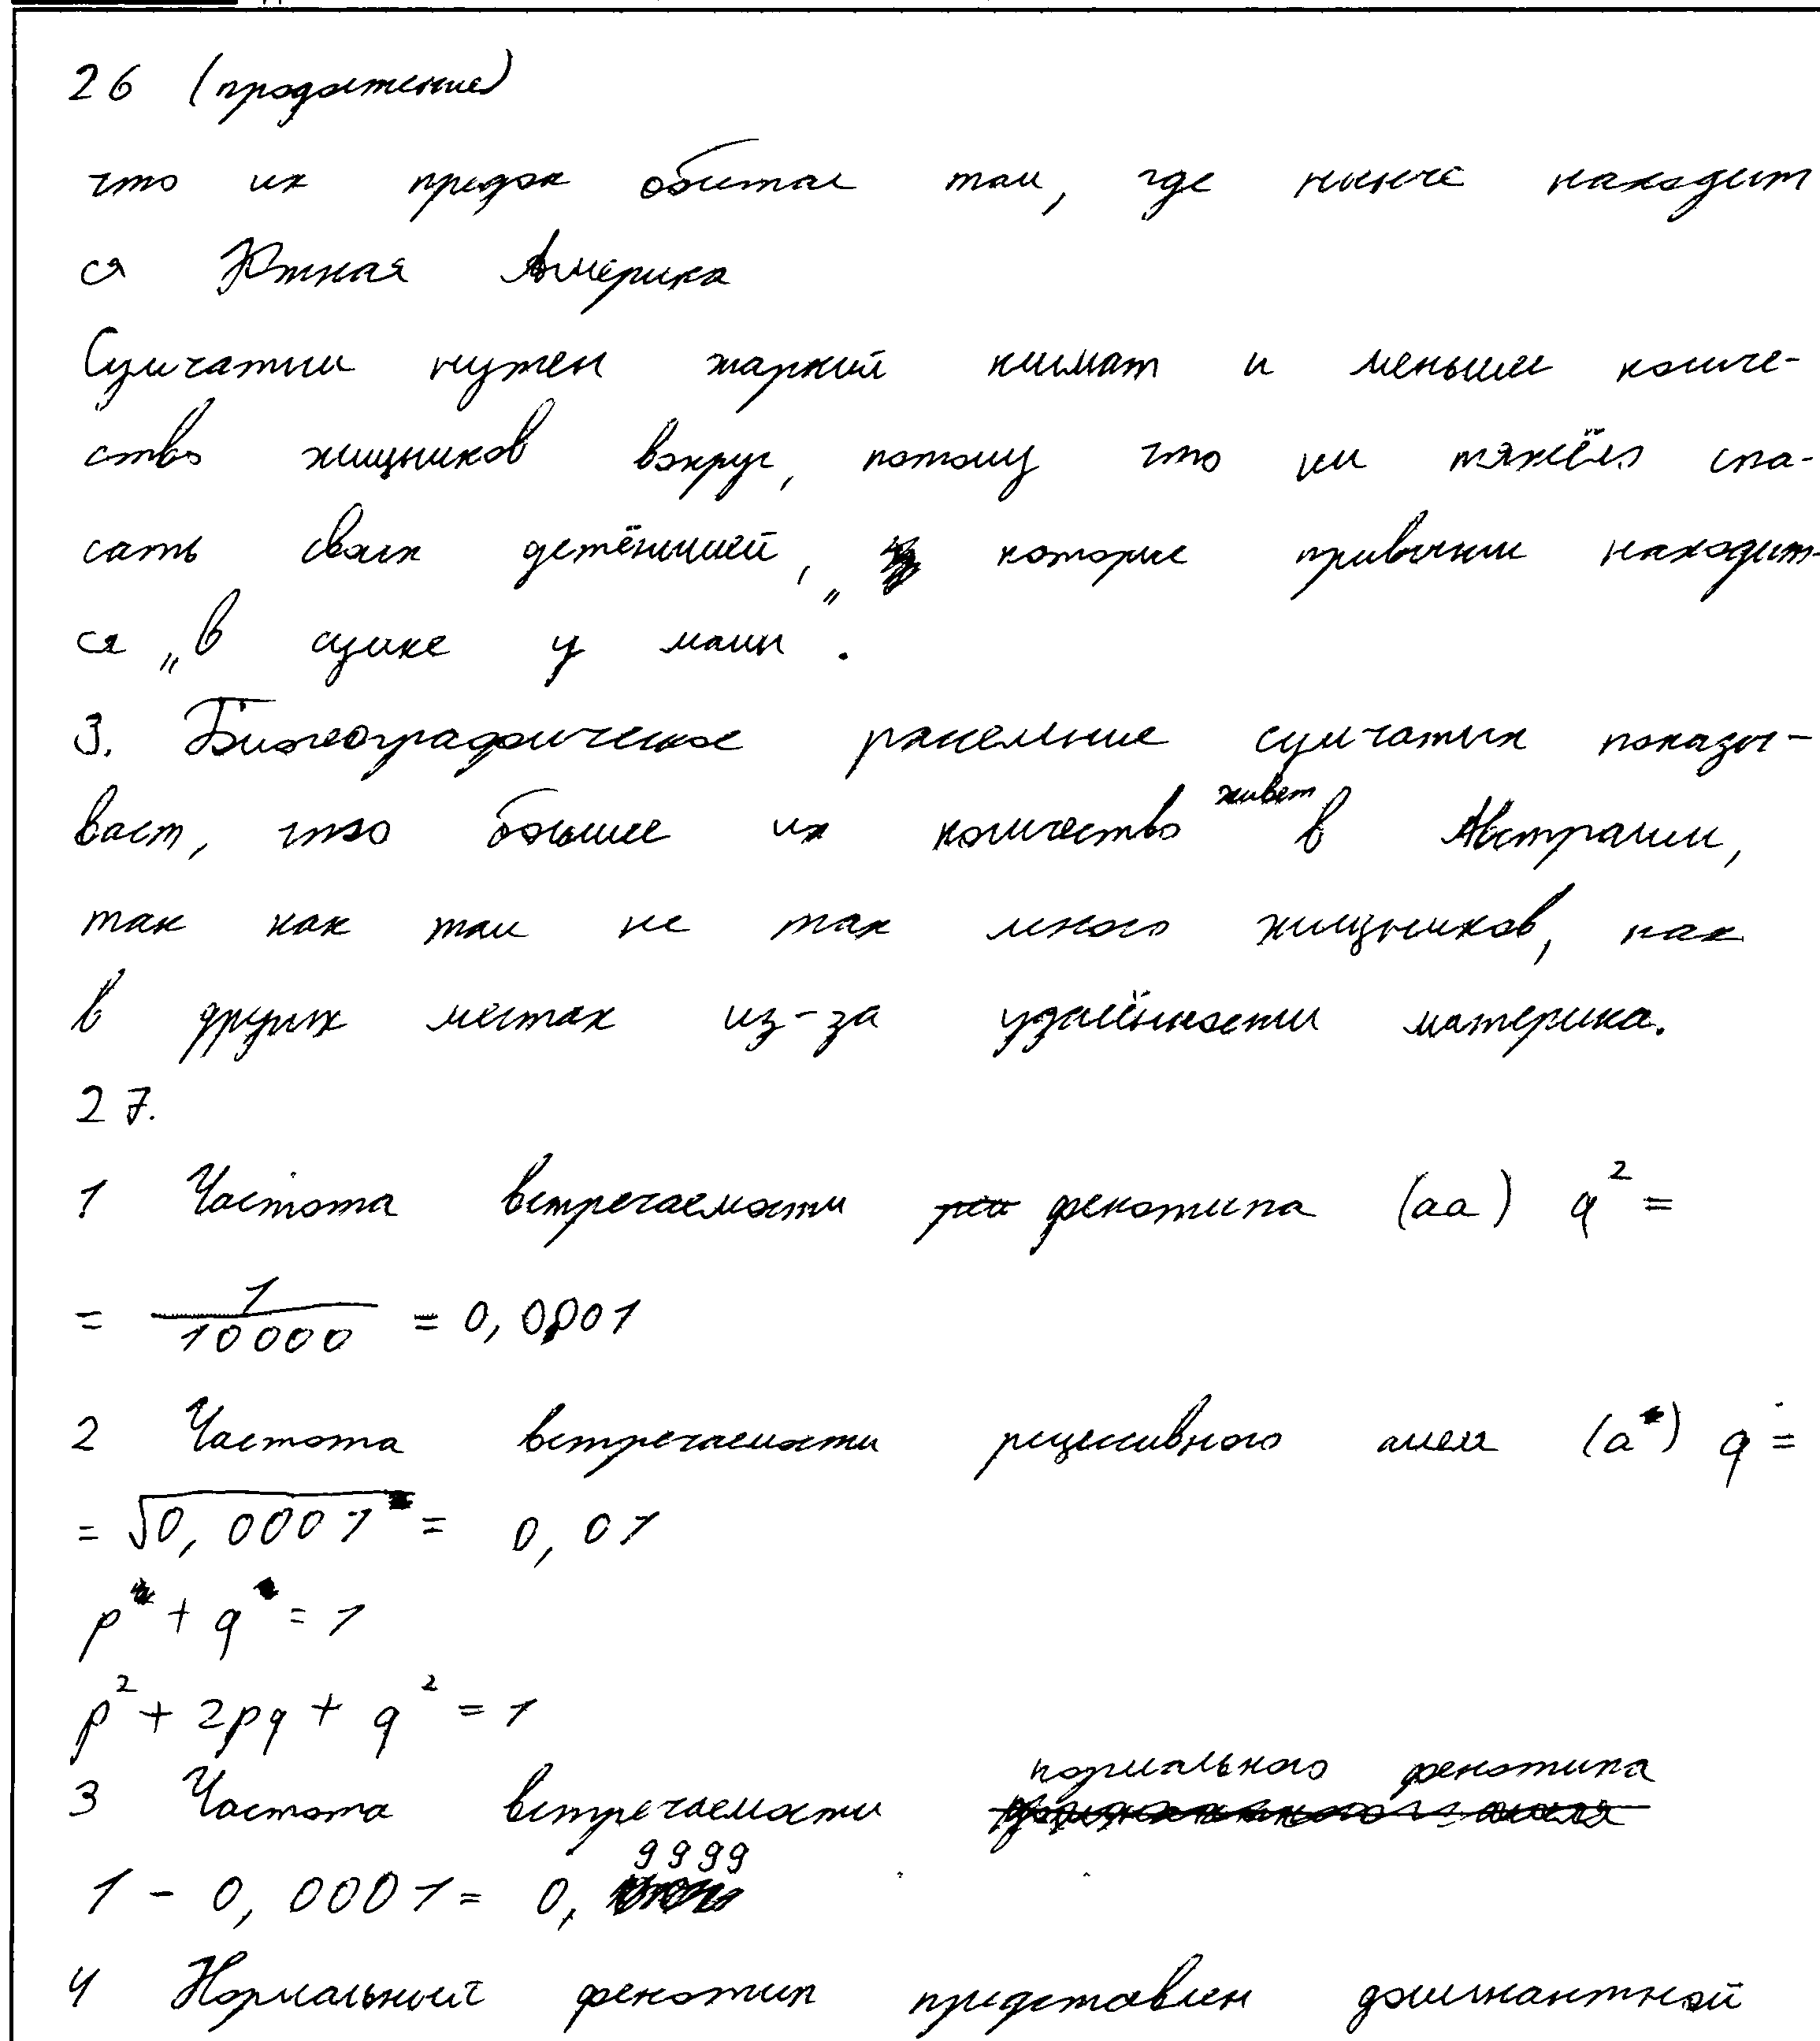 26 (продолжение)
что их предок обитал там, где нынче находит
ся Южная Америка
Сумчатым нужен жаркий климат и меньшее количе-
ство хищников вокруг, потому что им тяжело спа-
сать своих детёнышей, „ которые привыкли находит-
ся „в сумке у мамы .
3. Биогеографическое расселение сумчатых показы-
вает, что большее их количество живет в Австралии,
так как там не так много хищников, как
в других местах из-за удалённости материка.
27.
1 Частота встречаемости фенотипа (aa) q² =
= 1/10000 = 0,0001
2 Частота встречаемости рецессивного аллеля (a) q =
= √0,0001 = 0,01
p + q = 1
p² + 2pq + q² = 1
3 Частота встречаемости нормального фенотипа
1 - 0,0001 = 0,9999
4 Нормальный фенотип представлен доминантной